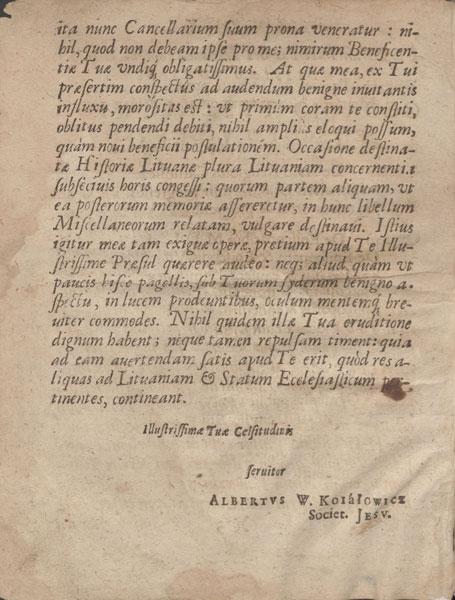 ita nunc Cancellarium ſuum prona veneratur : ni-
hil, quod non debeam ipſe pro me; nimirum Beneficen-
tiæ Tuæ vndiq́; obligatiſſimus. At quæ mea, ex Tui
præſertim conſpectus ad audendum benigne inuitantis
influxu, moroſitas eſt : vt primùm coram te conſtiti,
oblitus pendendi debiti, nihil ampliùs eloqui poſſum,
quàm noui beneficii poſtulationem. Occaſione deſtina-
tæ Hiſtoriæ Lituanæ plura Lituaniam concernentia
ſubſeciuis horis congeſſi : quorum partem aliquam, vt
ea poſterorum memoriæ aſſereretur, in hunc libellum
Miſcellaneorum relatam, vulgare deſtinaui. Iſtius
igitur meæ tam exiguæ operæ, pretium apud Te Illu-
ſtriſſime Præſul quærere audeo : neq; aliud, quàm vt
paucis hiſce pagellis, ſub Tuorum ſyderum benigno a-
ſpectu, in lucem prodeuntibus, oculum mentemq́; bre-
uiter commodes. Nihil quidem illæ Tua eruditione
dignum habent; neque tamen repulſam timent: quia
ad eam auertendam ſatis apud Te erit, quòd res a-
liquas ad Lituaniam & Statum Eccleſiaſticum per-
tinentes, contineant.
Illuſtriſſimæ Tuæ Celſitudinis
ſeruitor
ALBERTVS W. KOIAŁOWICZ
Societ. JESV.